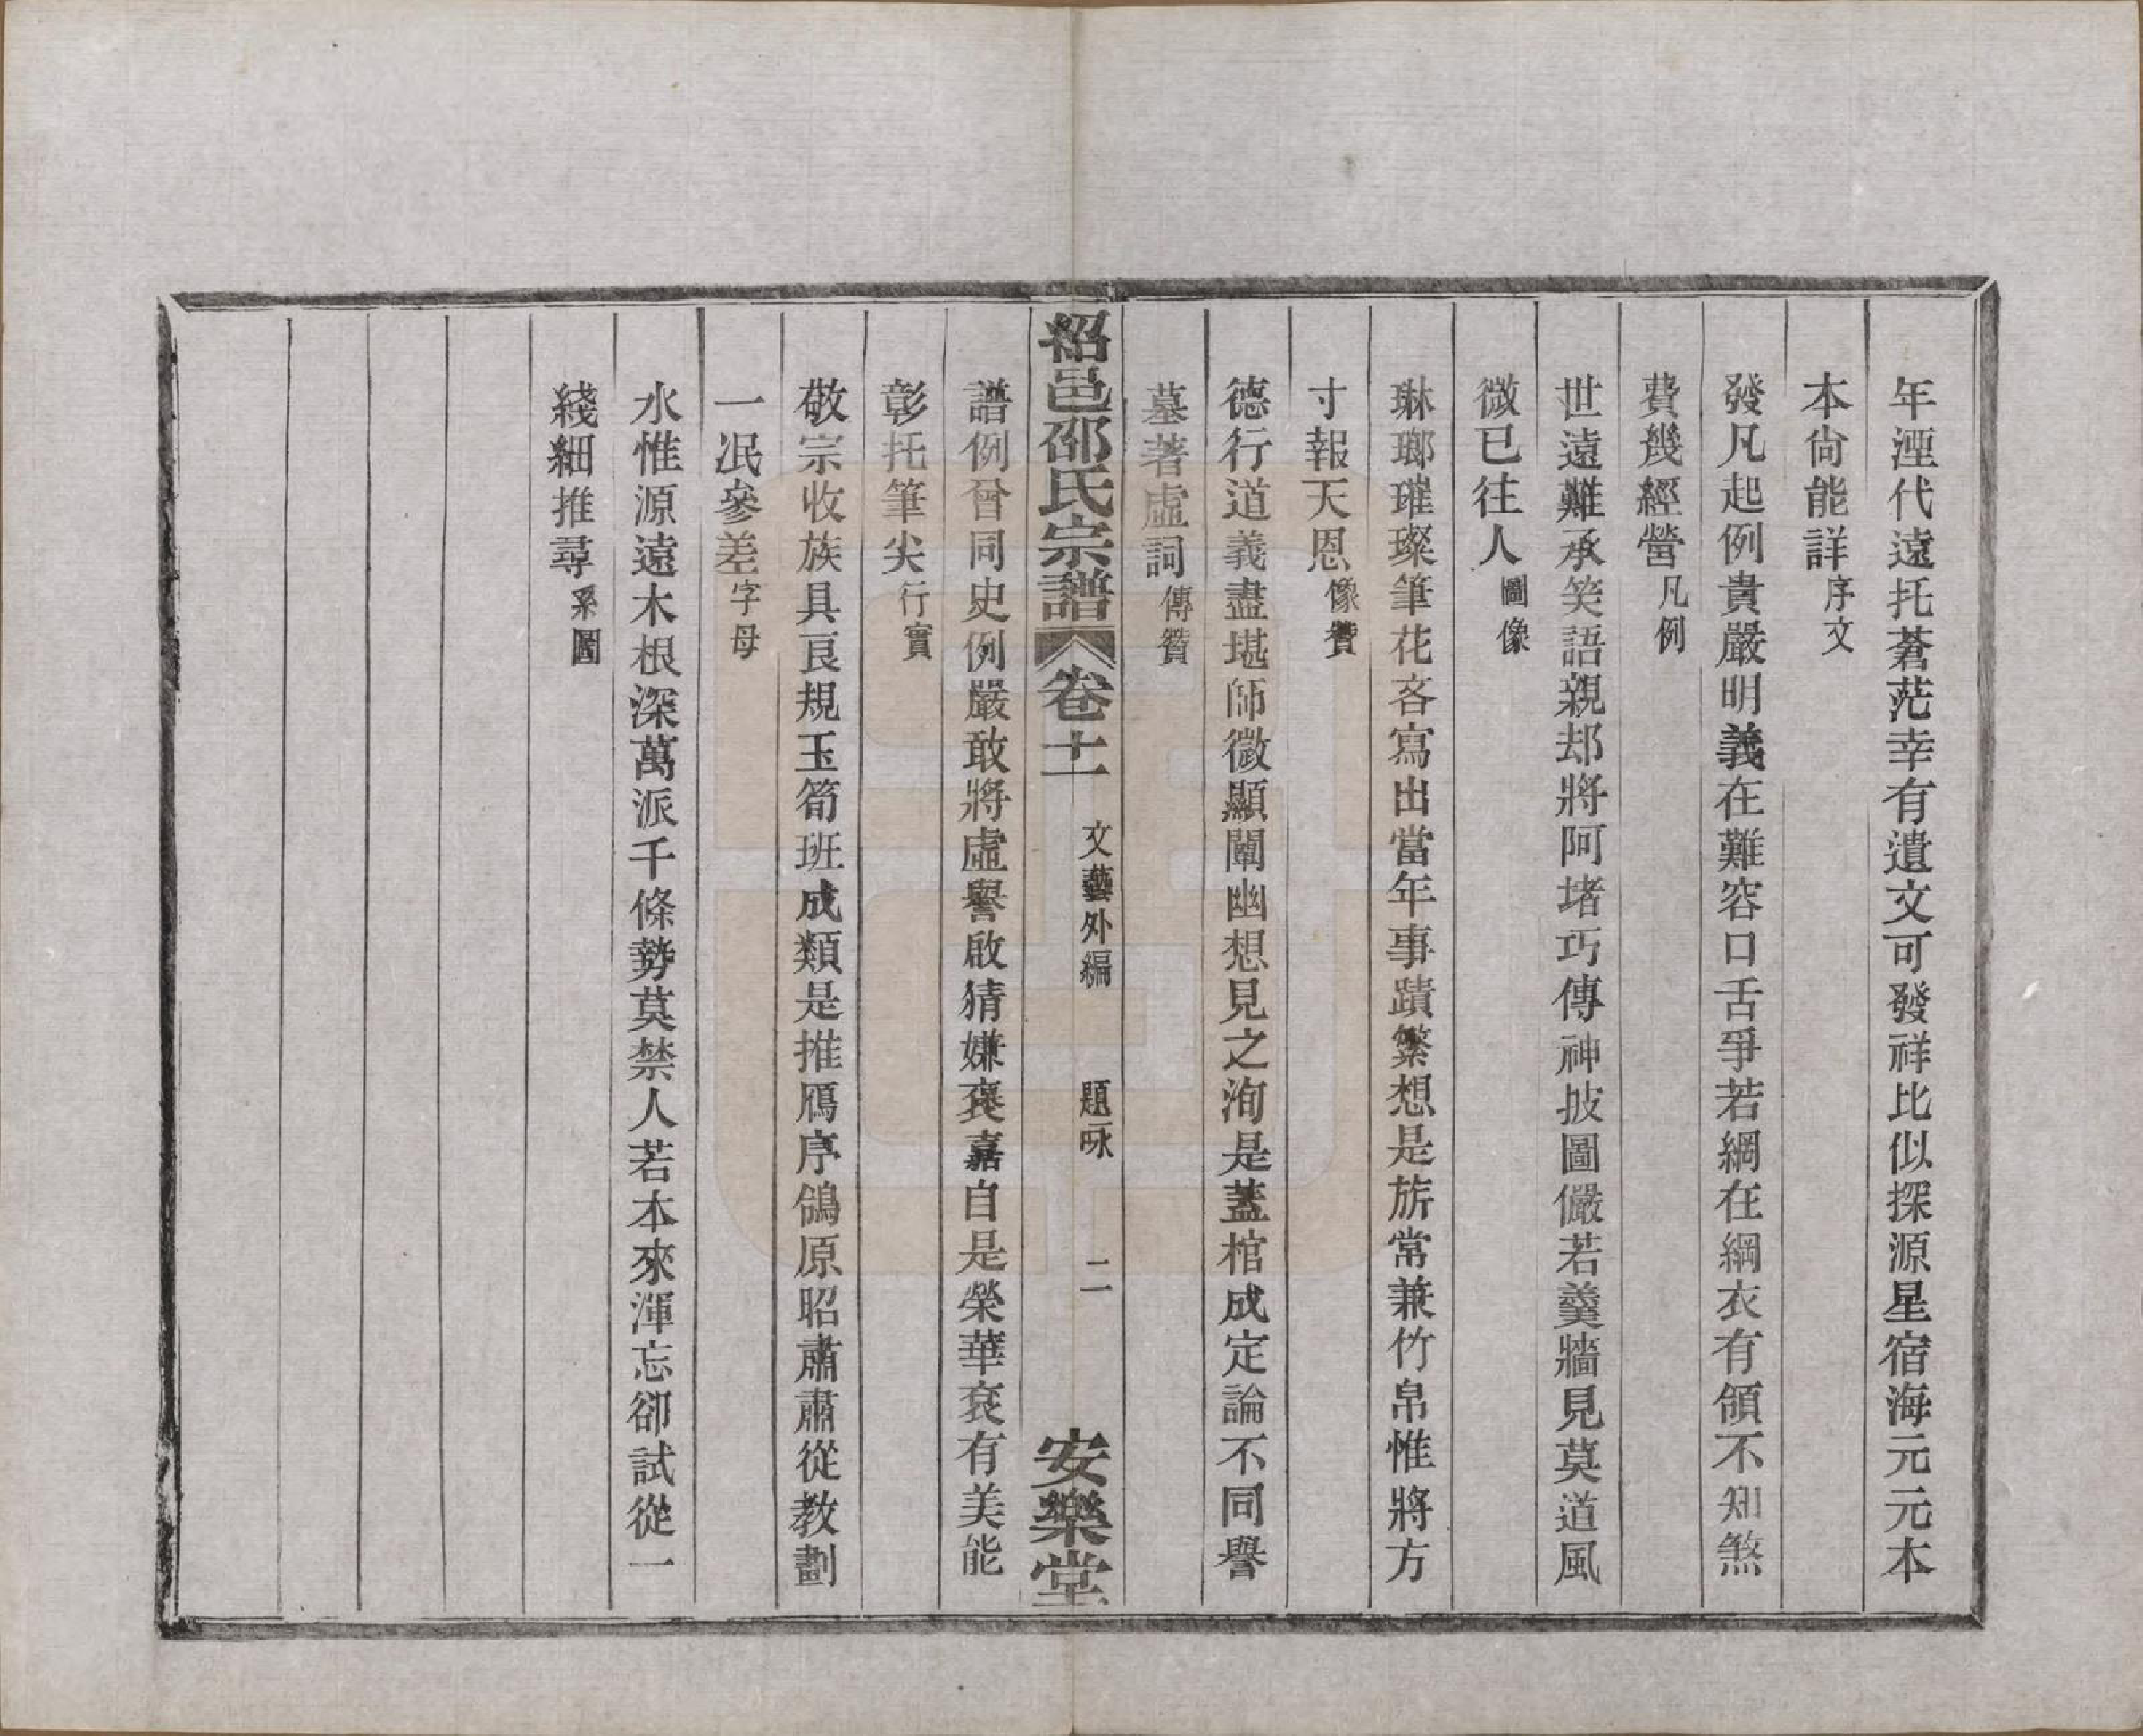 年湮代遠托蒼茫幸有遺文可發祥比似探源星宿海元元本
本尙能詳序文
發凡起例貴嚴明義在難容口舌爭若網在綱衣有領不知煞
費幾經營凡例
世遠難承笑語親却將阿堵巧傳神披圖儼若羹牆見莫道風
微已往人圖像
琳瑯璀璨筆花吝寫出當年事蹟繁想是旂常兼竹帛惟將方
寸報天恩像贊
德行道義盡堪師微顯闡幽想見之洵是蓋棺成定論不同譽
墓著虛詞傳贊
紹邑邵氏宗譜 卷十一 文藝外編 題咏 二 安樂堂
譜例曾同史例嚴敢將虛譽啟猜嫌褒嘉自是榮華袞有美能
彰托筆尖行實
敬宗收族具良規玉筍班成類是推鴈序鴒原昭肅肅從教劃
一泯參差字母
水惟源遠木根深萬派千條勢莫禁人若本來渾忘卻試從一
綫細推尋系圖